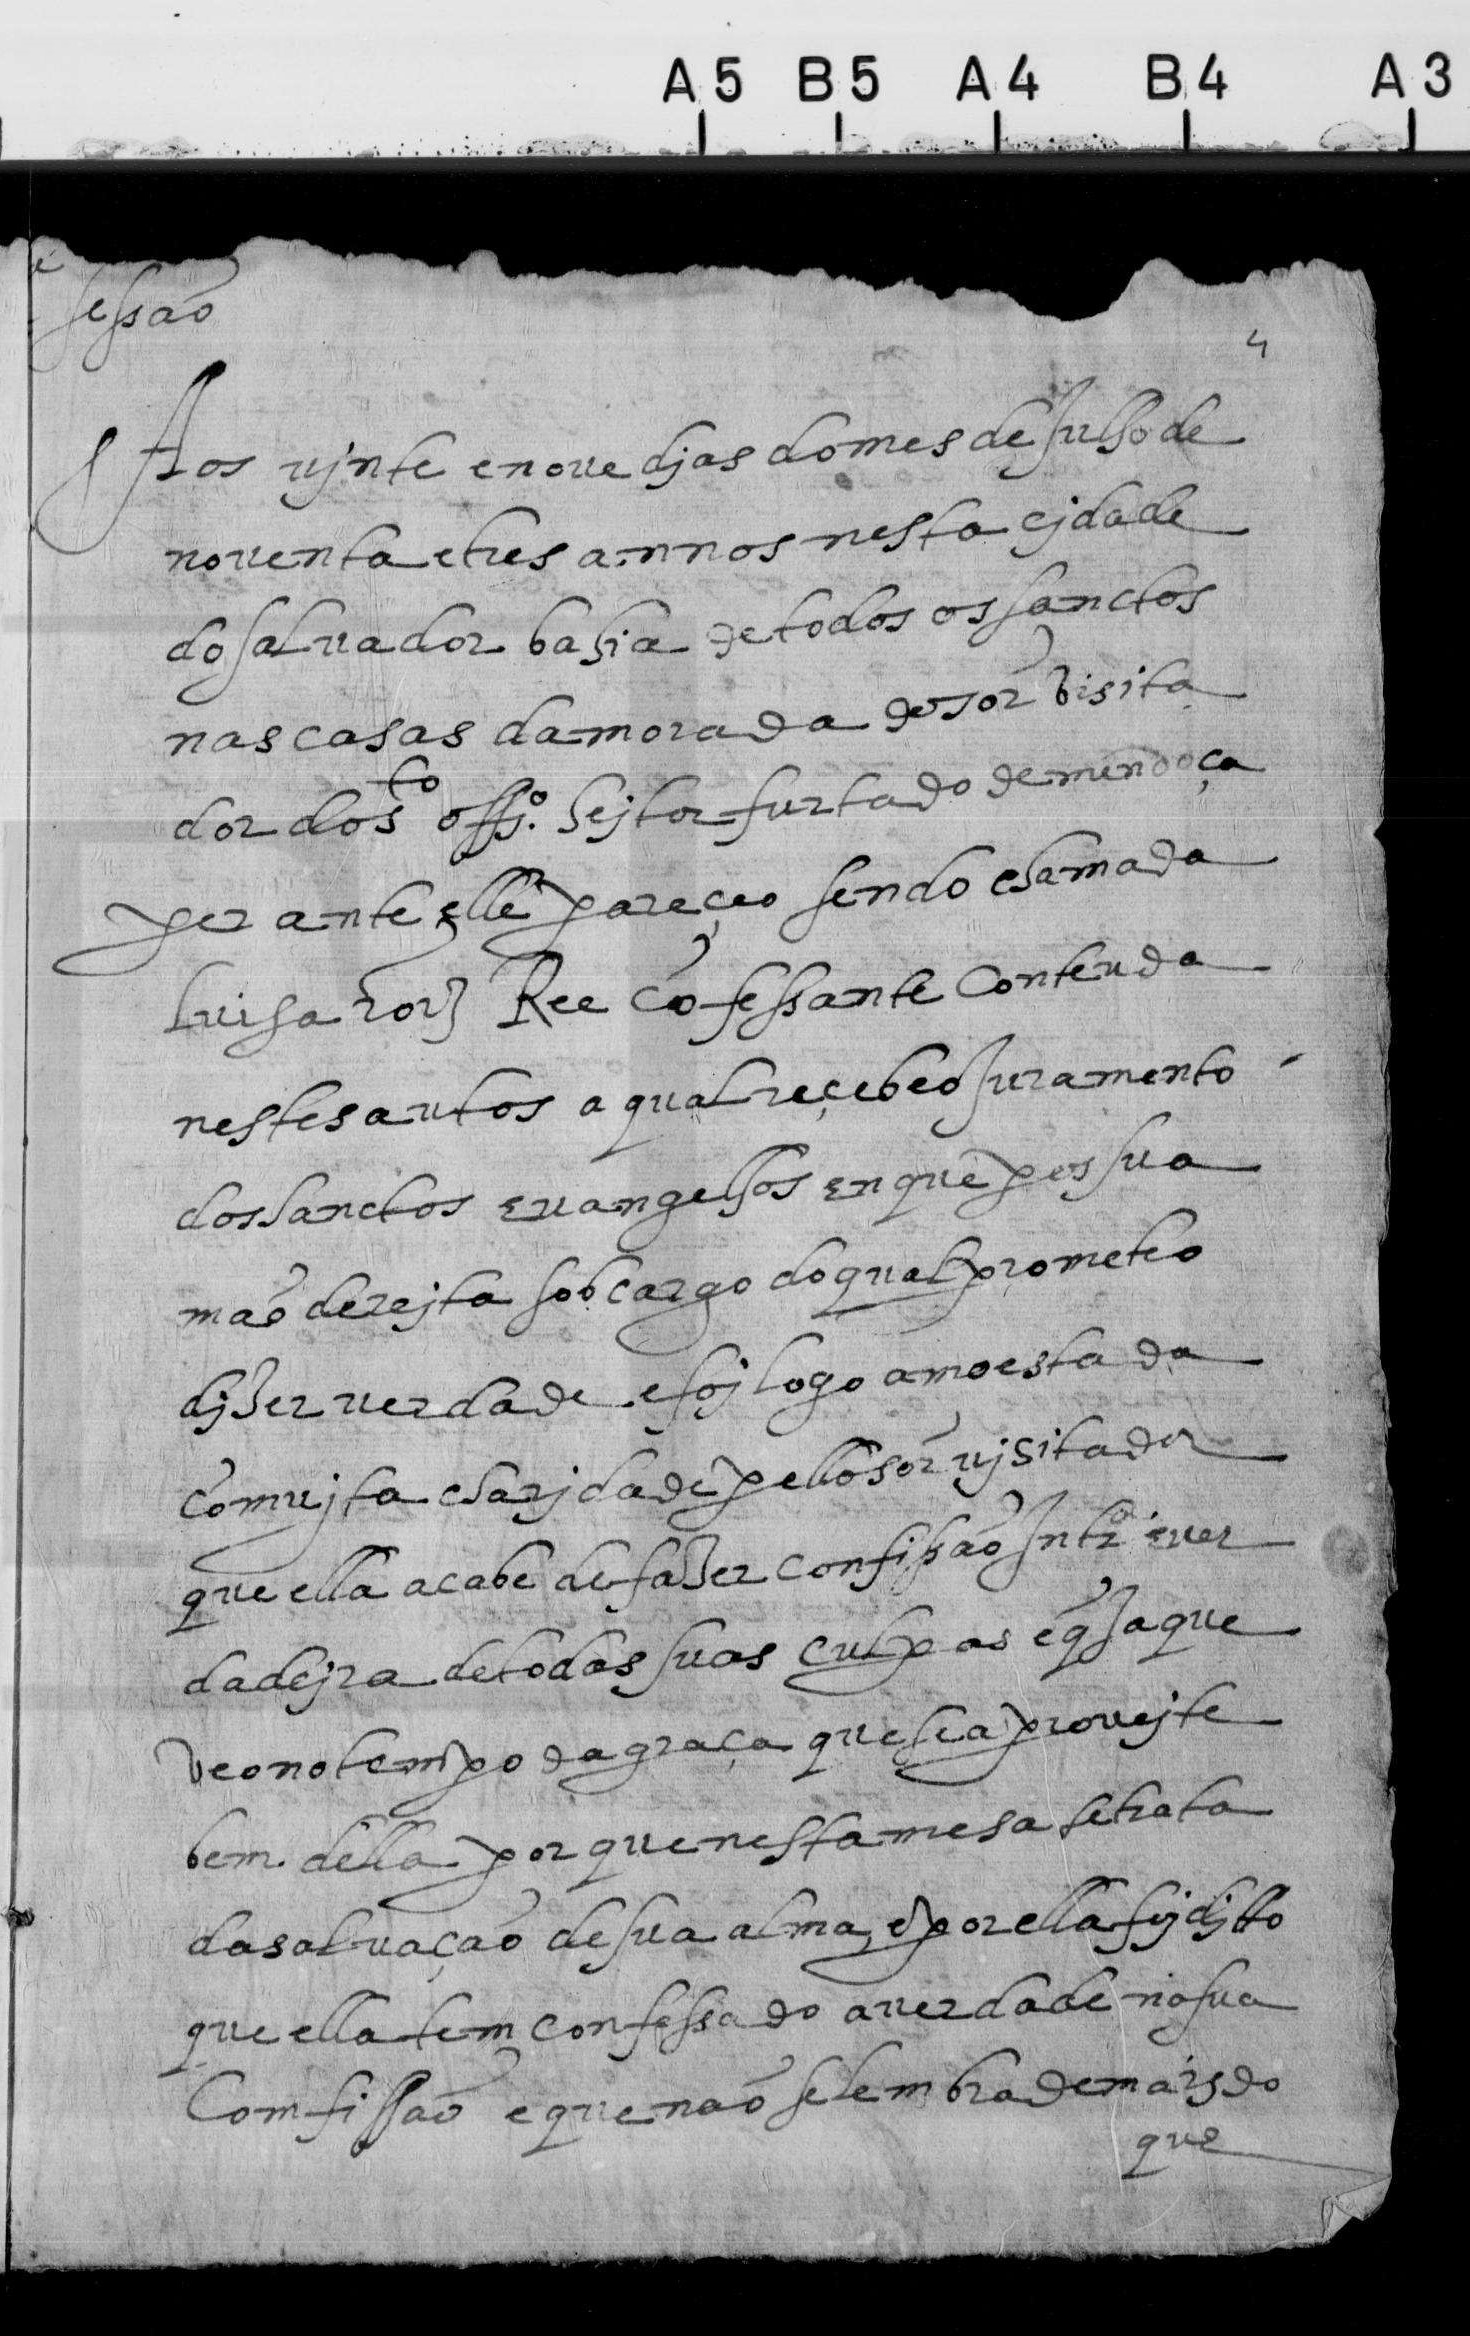 A5 B5 A4 B4 A3
sessaõ
4
Aos vjnte e noue djas do mes de Julho de
nouenta e tres annos nesta cjdade
do saluador bahia de todos os sanctos
nas casas da morada do sor̃ visita
dor do sto offjo. hejtor furtado de mendoça
perante elle pareçeo sendo chamada
Luisa roiz Ree cõfessante Conteuda
nestes autos a qual reçebeo Juramento
dos sanctos euangelhos en que pos sua
maõ derejta sob cargo do qual prometeo
djzer verdade e foj logo amoestada
cõ mujta charjdade pello sor̃ vjsitador
que ella acabe de fazer confissaõ Intra e uer
dadejra de todas suas culpas e q̃ Ja que
veo no tempo da graça que se aprouejte
bem della porque nesta mesa se trata
da saluaçaõ de sua alma, e por ella foj djtto
que ella tem confessado a uerdade na sua
Comfissaõ e que naõ se lembra de mais do
que